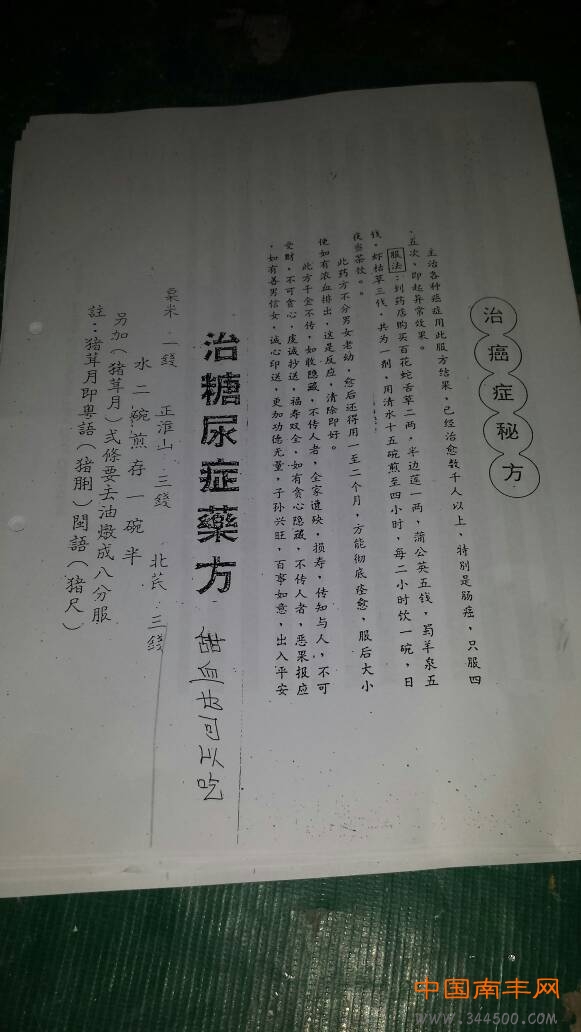 治癌症秘方
主治各种癌症用此服方结果，已经治愈数千人以上，特别是肠癌，只服四
、五次，即起异常效果。
服法：到药店购买百花蛇舌草二两，半边莲一两，蒲公英五钱，蜀羊泉五
钱，虾枯草三钱，共为一剂，用清水十五碗煎至四小时，每二小时饮一碗，日
夜当茶饮。。
此药方不分男女老幼，愈后还得用一至二个月，方能彻底痊愈，服后大小
便如有浓血排出，这是反应，清除即好。
此方千金不传，如收隐藏，不传人者，全家遭殃，损寿，传知与人，不可
受财，不可贪心，虔诚抄送，福寿双全，如有贪心隐藏，不传人者，恶果报应
，如有善男信女，诚心印送，更加功德无量，子孙兴旺，百事如意，出入平安
治糖尿症藥方 甜血也可以吃
粟米 一錢 正淮山 三錢 北芪 三錢
水二碗煎存一碗半
另加（猪茸月）弍條要去油燉成八分服
註：猪茸月即粵語（猪脷）閩語（猪尺）
中国南丰网
www.344500.com